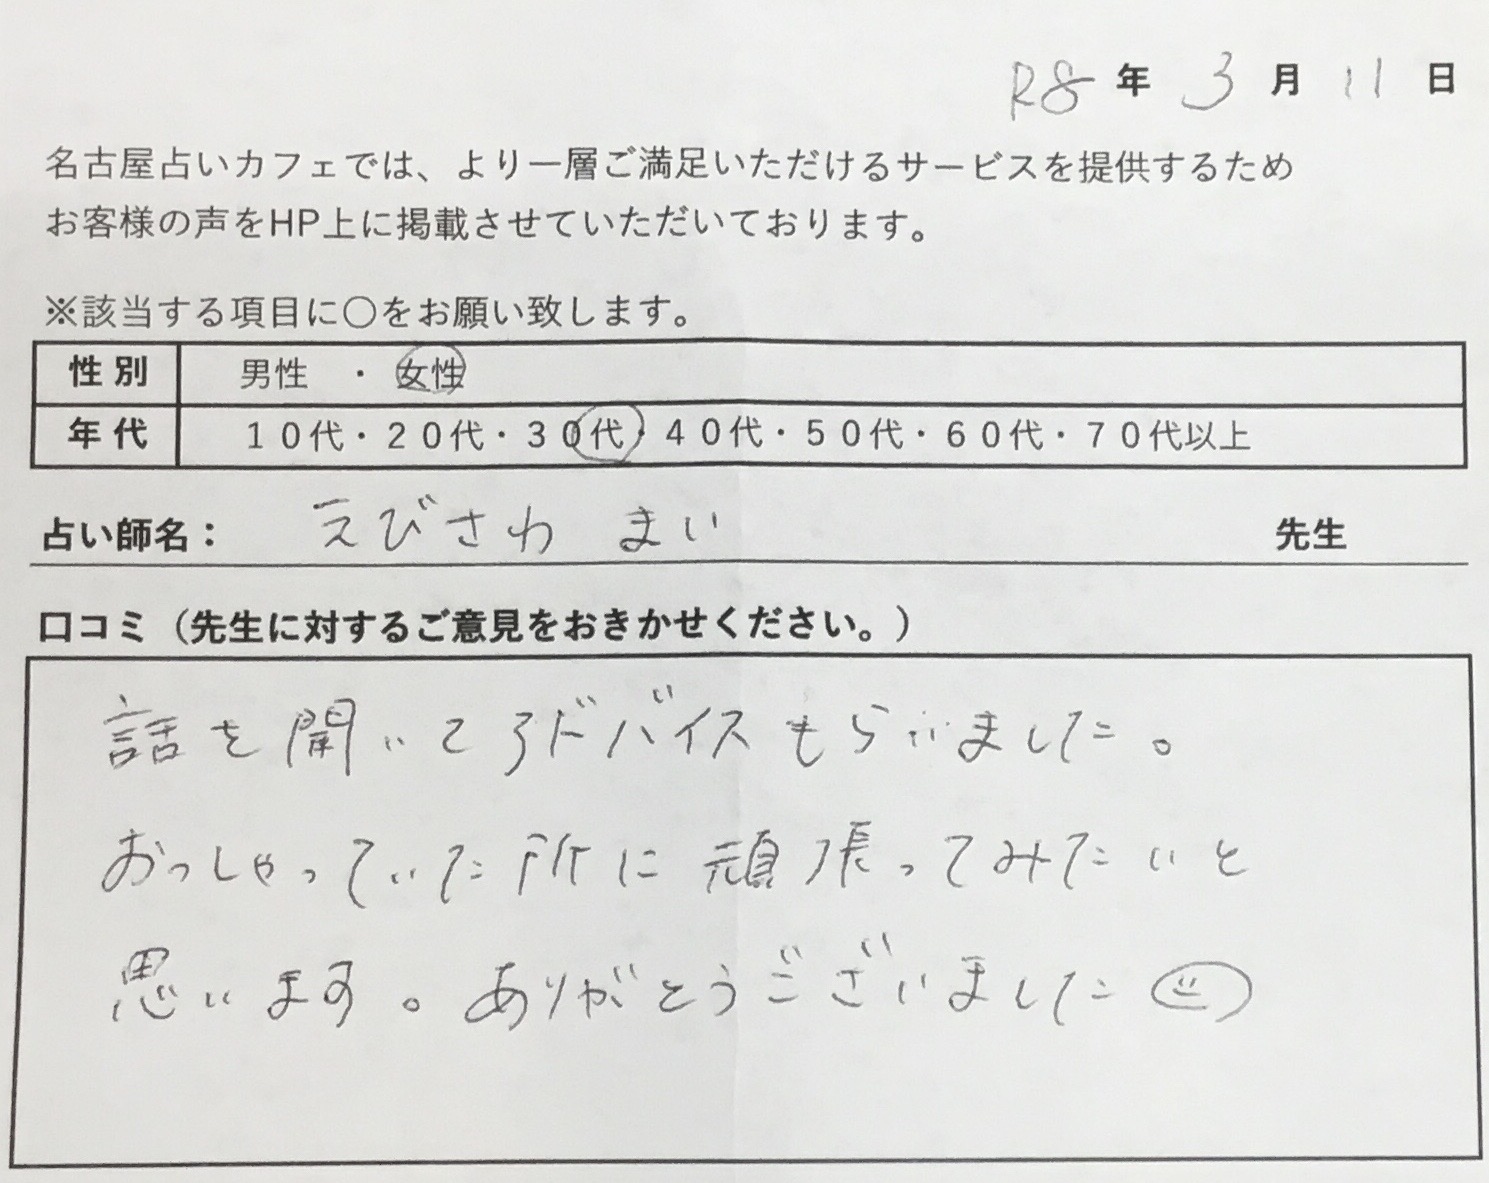 R8年 3月 11日
名古屋占いカフェでは、より一層ご満足いただけるサービスを提供するため
お客様の声をHP上に掲載させていただいております。
※該当する項目に〇をお願い致します。
性別 男性 ・ 女性
年代 10代・20代・30代・40代・50代・60代・70代以上
占い師名： えびさわ まい 先生
口コミ（先生に対するご意見をおきかせください。）
話を聞いてアドバイスもらいました。
おっしゃっていた所に頑張ってみたいと
思います。ありがとうございました